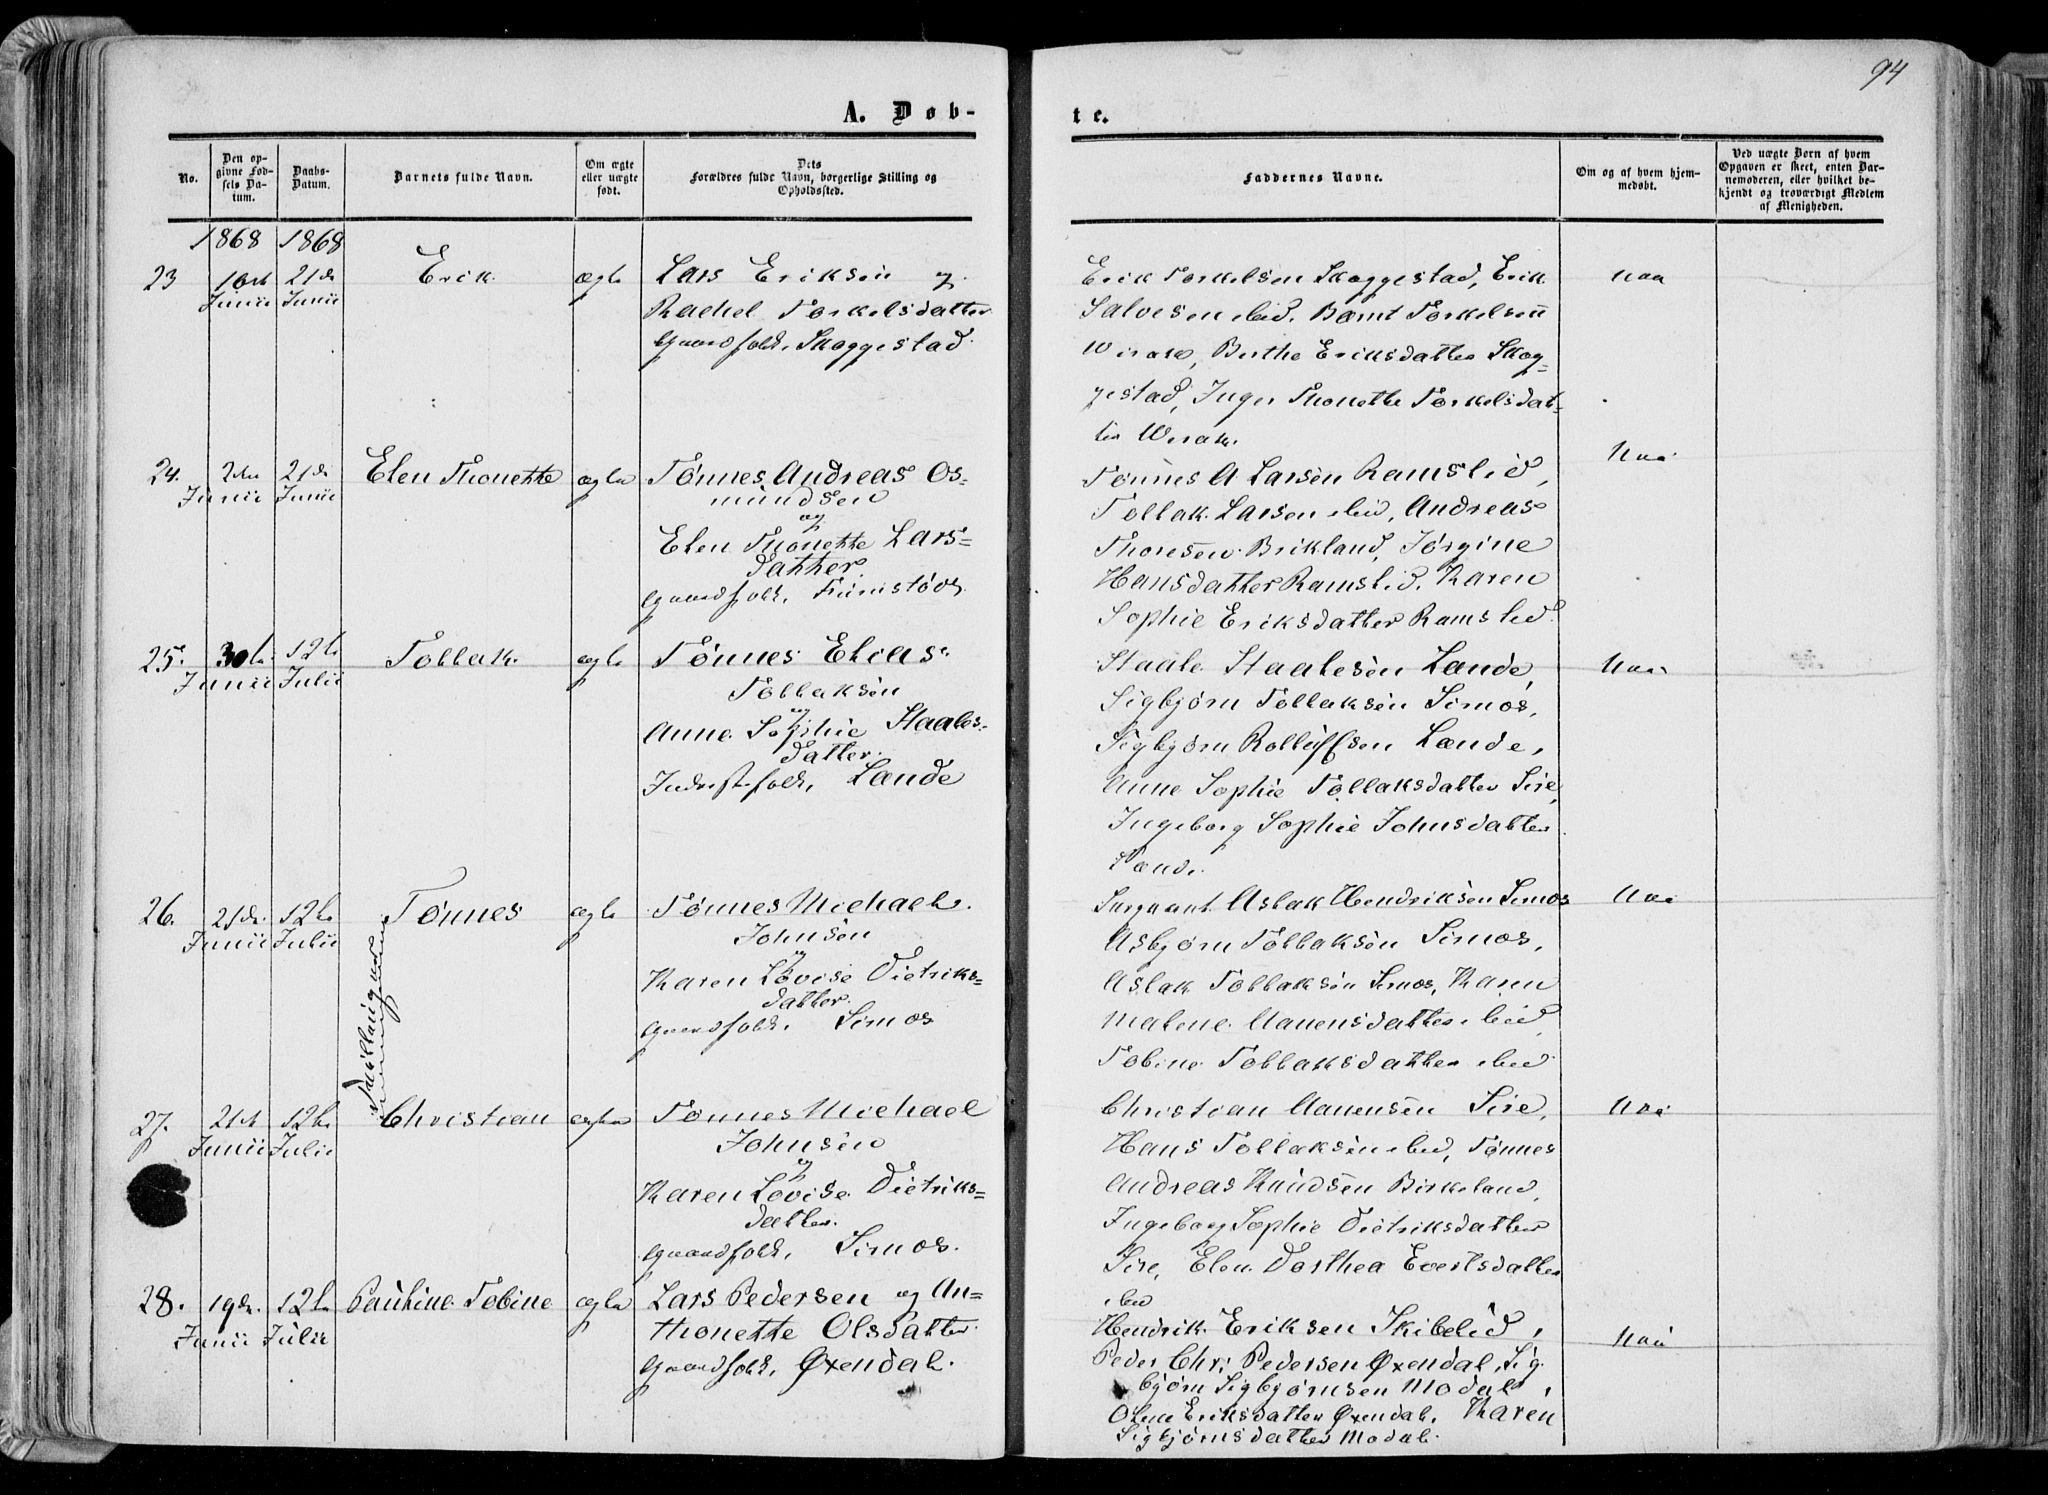 94
A. Døb-
te.
No.
Den op-
givne Fød-
sels Da-
tum.
Daabs-
Datum.
Barnets fulde Navn.
Om ægte
eller uægte
født.
Dets
Forældres fulde Navn, borgerlige Stilling og
Opholdssted.
Faddernes Navne.
Om og af hvem hjem-
medøbt.
Ved uægte Børn af hvem
Opgaven er skeet, enten Bar-
nemoderen, eller hvilket be-
kjendt og troværdigt Medlem
af Menigheden.
1868 1868
23
Junii
21de
Junii
Erik
ægte
Lars Eriksen og
Rachel Torkelsdatter
Gaardfolk, Skoggestad
Erik Torkelsen Skoggestad, Erik
Salvesen ibid. Bernt Torkelsen
Berthe Eriksdatter Skog=
gestad, Inger Thonette Torkelsdat=
ter
Naa
24.
2den
Junii
21de
Junii
Elen Thonette
ægte
Tønnes Andreas Os=
mundsen
og
Elen Thonette Lars=
datter
Gaardfolk,
Tønnes A Larsen Ramslid,
Tollak Larsen ibid, Andreas
Thoresen Birkland, Jørgine
Hansdatter Ramslid, Karen
Sophie Eriksdatter Ramslid
Naa
25.
30te
Junii
12te
Julii
Tollak
ægte
Tønnes Elias
Tollaksen
og
Anne Sophie Staales=
datter
Inderstfolk, Lande
Staale Staalesen Lande,
Sigbjørn Tollaksen Simos,
Sigbjørn Rolluffsen Lande,
Anne Sophie Tollaksdatter Sire,
Ingeborg Sophie Johnsdatter
Lande
Naa
26.
21de
Junii
12te
Julii
Tønnes
ægte
Tønnes Michael
Johnsen
og
Karen Lovise Dietriks=
datter
Gaardfolk, Simos
Sergeant Aslak Hendriksen Simos
Asbjørn Tollaksen Simos,
Aslak Tollaksen Simos, Karen
Malene Aanensdatter ibid,
Tobine Tollaksdatter ibid
Naa
27.
21de
Junii
12te
Julii
Christian
ægte
Tønnes Michael
Johnsen
og
Karen Lovise Dietriks=
datter
Gaardfolk, Simos.
Christian Aanensen Sire,
Hans Tollaksen ibid, Tønnes
Andreas Knudsen Birkeland,
Ingeborg Sophie Dietriksdatter
Sire, Elen Dorthea Evertsdatter
ibid
Naa
28.
19de
Junii
12te
Julii
Pauline Tobine
ægte
Lars Pedersen og An=
thonette Olsdatter
Gaardfolk, Øxendal.
Hendrik Eriksen Skibelid,
Peder Chr: Pedersen Øxendal, Sig-
bjørn Sigbjørnsen Modal,
Oline Eriksdatter Øxendal, Karen
Sigbjørnsdatter Modal.
Naa